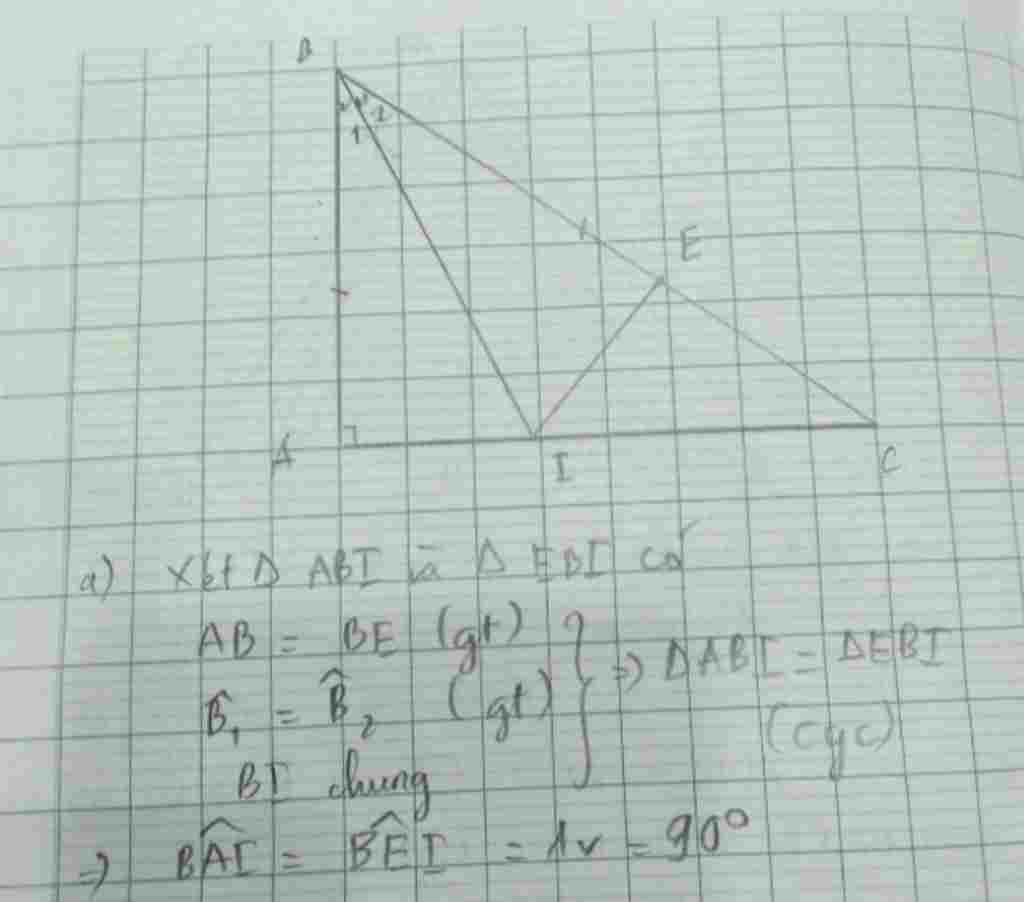 B
1 2
E
A
I
C
a) Xét Δ ABI và Δ EBI có
AB = BE (gt)
B̂₁ = B̂₂ (gt)
BI chung
} => ΔABI = ΔEBI
(cgc)
=> BÂI = BÊI = 1v = 90°